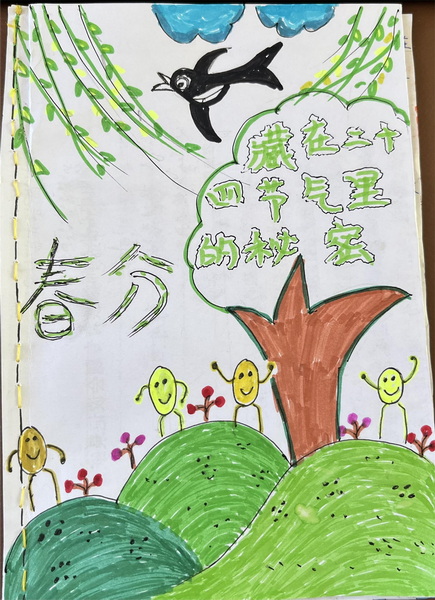 藏在二十
四节气里
的秘密
春分